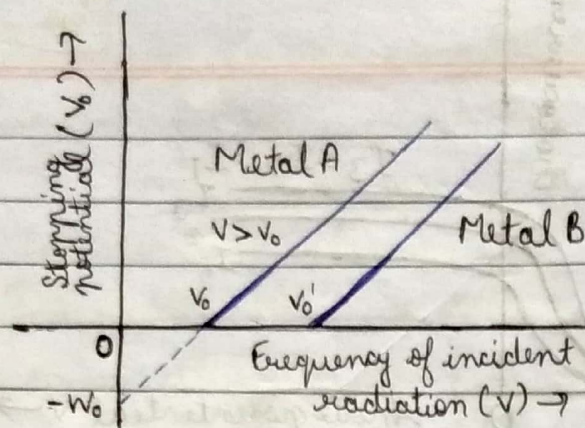 Stopping
potential (V₀) →
Metal A
ν > ν₀
Metal B
ν₀
ν₀'
0
Frequency of incident
radiation (ν) →
-W₀